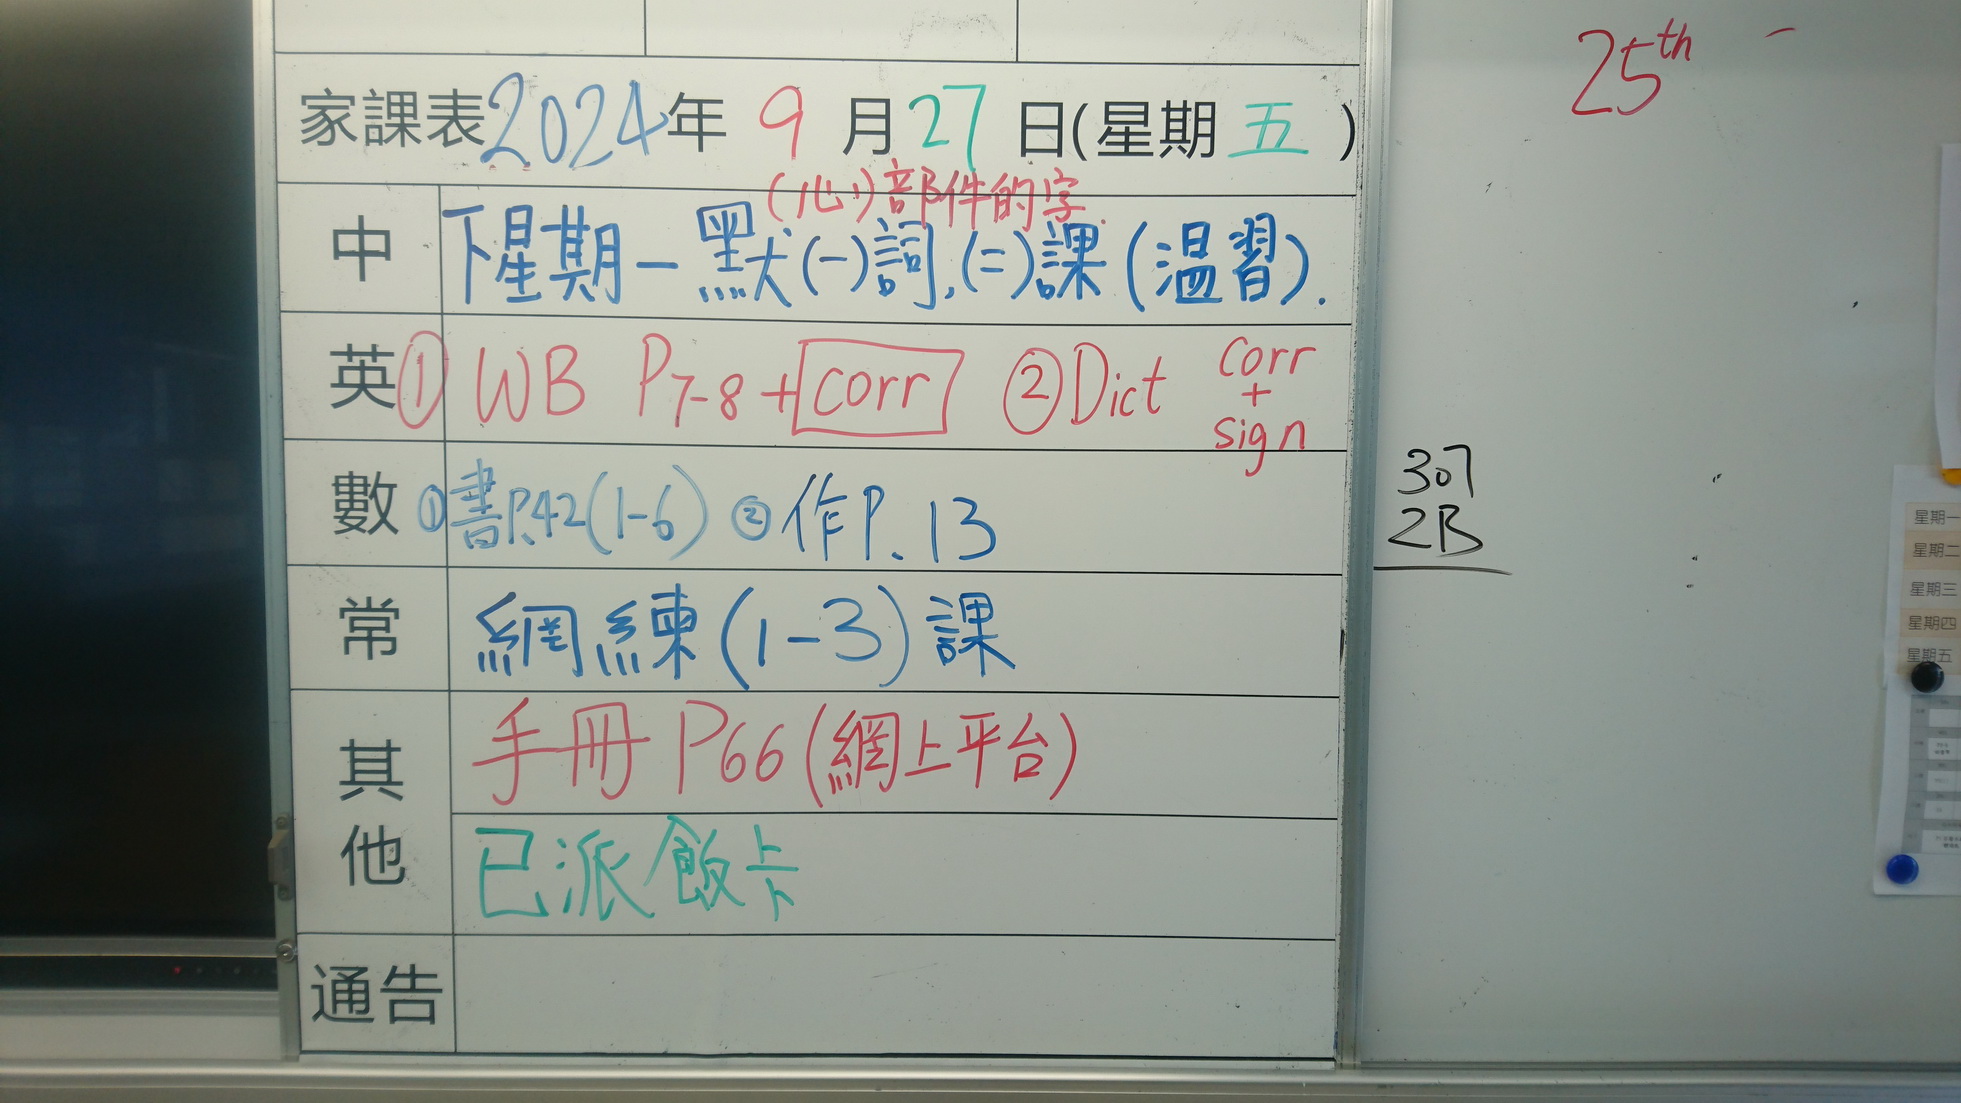 25th
家課表2024年 9月27日(星期五)
(心)部件的字
中 下星期一默(一)詞,(二)課(温習).
英 ① WB P7-8 + corr ② Dict corr + sign
數 ①書P.42(1-6) ②作P.13
307
2B
常 網練(1-3)課
其他 手冊 P66(網上平台)
已派飯卡
通告
星期一
星期二
星期三
星期四
星期五